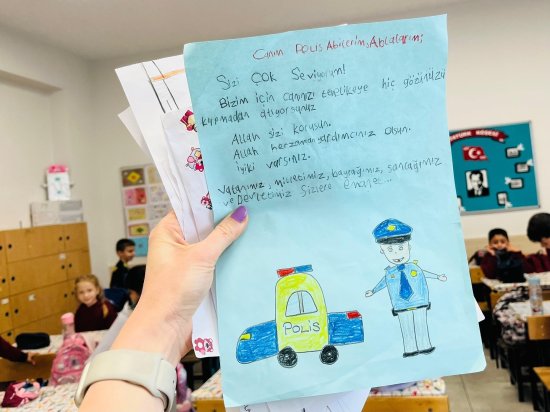 Canım POLİS Abilerim, Ablalarım;
Sizi ÇOK Seviyorum!
Bizim için canınızı tehlikeye hiç gözünüzü
kırpmadan atıyorsunuz
Allah sizi korusun.
Allah herzaman yardımcınız olsun.
iyiki varsınız.
Vatanımız, milletimiz, bayrağımız, sancağımız
ve Devletimiz Sizlere Emanet...
POLİS